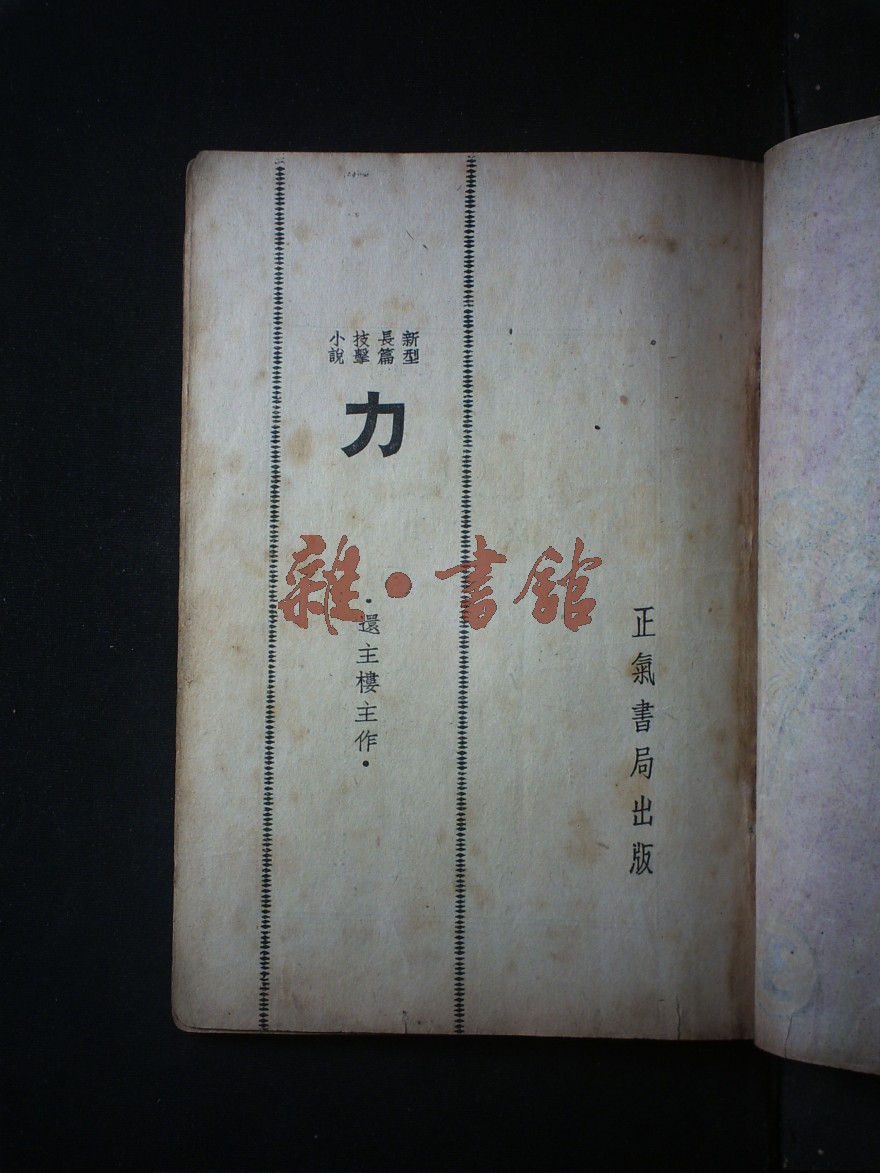 正氣書局出版
新型
長篇
技擊
小說
力
•還主樓主作•
雜•書舘